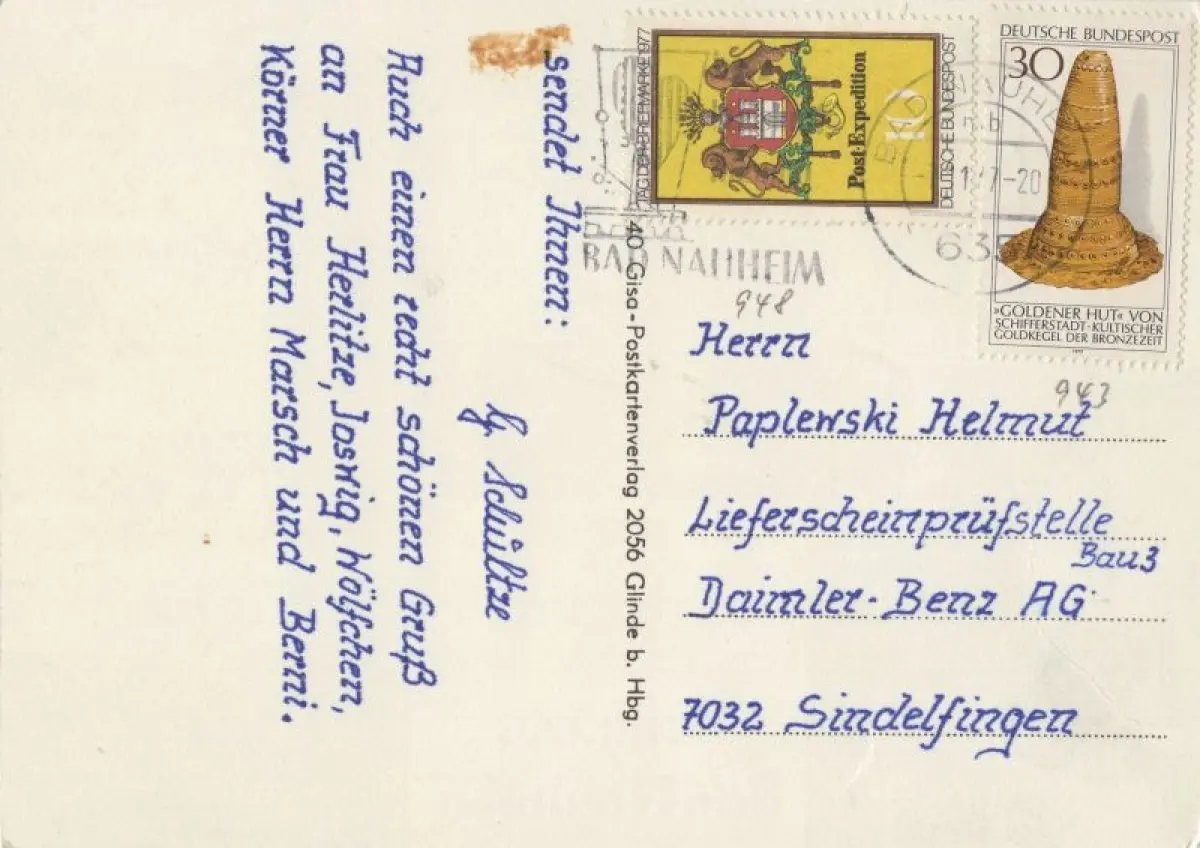 sendet Ihnen:
Schültze
Auch einen recht schönen Gruß
an Frau Herlitze, Joswig, Wölfchen,
Körner Herrn Marsch und Berni.
40 Gisa-Postkartenverlag 2056 Glinde b. Hbg.
TAG DER BRIEFMARKE 1977
Post-Expedition
10
DEUTSCHE BUNDESPOST
DEUTSCHE BUNDESPOST
30
»GOLDENER HUT« VON
SCHIFFERSTADT·KULTISCHER
GOLDKEGEL DER BRONZEZEIT
1977
BAD NAUHEIM
948
943
Herrn
Paplewski Helmut
Lieferscheinprüfstelle
Bau 3
Daimler-Benz AG
7032 Sindelfingen